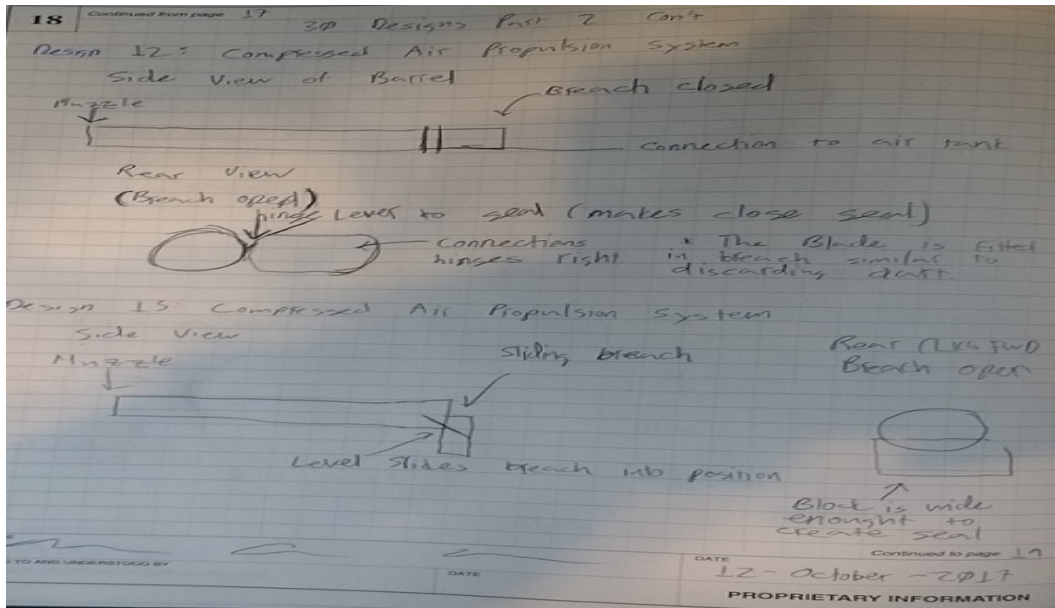 18 Continued from page 17
30 Designs Part 2 Con't
Design 12: Compressed Air Propulsion System
Side View of Barrel
Breach closed
Muzzle
Connection to air tank
Rear View
(Breach open)
hinge Lever to seal (makes close seal)
Connections
hinges right
* The Blade is fitted
in breach similar to
discarding dart.
Design 13: Compressed Air Propulsion System
Side View
Muzzle
sliding breach
Rear (LKG FWD
Breach open
Level slides breach into position
Block is wide
enought to
create seal
Continued to page 19
TO AND UNDERSTOOD BY
DATE
DATE
12-October-2017
PROPRIETARY INFORMATION